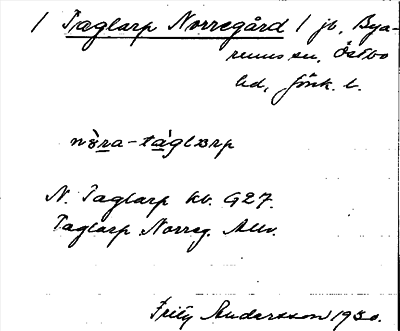 / Taglarp Norregård / jb, Bya-
rums sn, Östbo
hd, Jönk. l.
nò̤ra-tàglarp
N. Taglarp kb. G27.
Taglarp Norreg. Allv.
Fritz Andersson 1930.